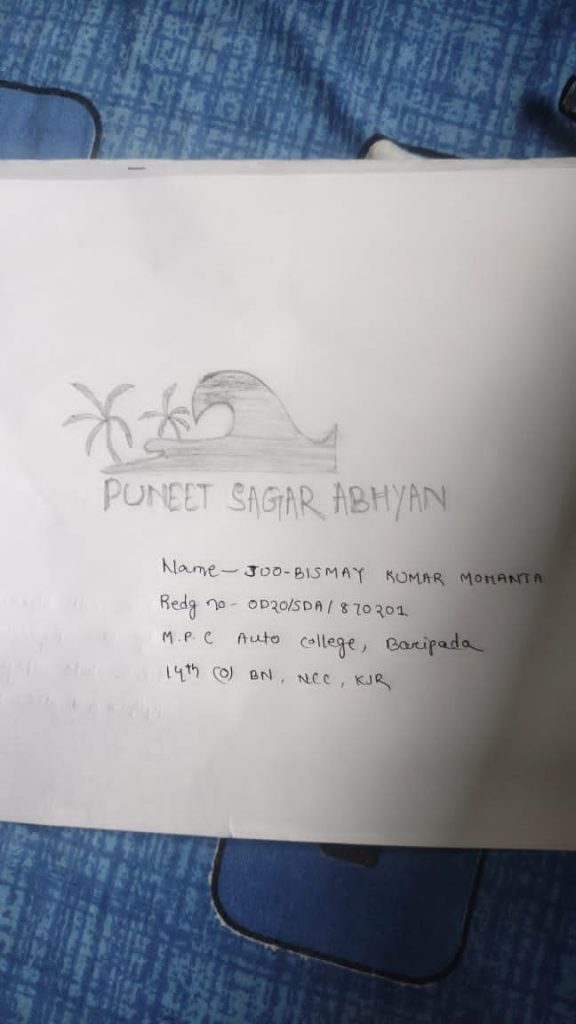 PUNEET SAGAR ABHYAN
Name - JUO-BISMAY KUMAR MOHANTA
Redg no - OD20/SDA/870201
M.P.C Auto college, Baripada
14th (O) BN, NCC, KJR